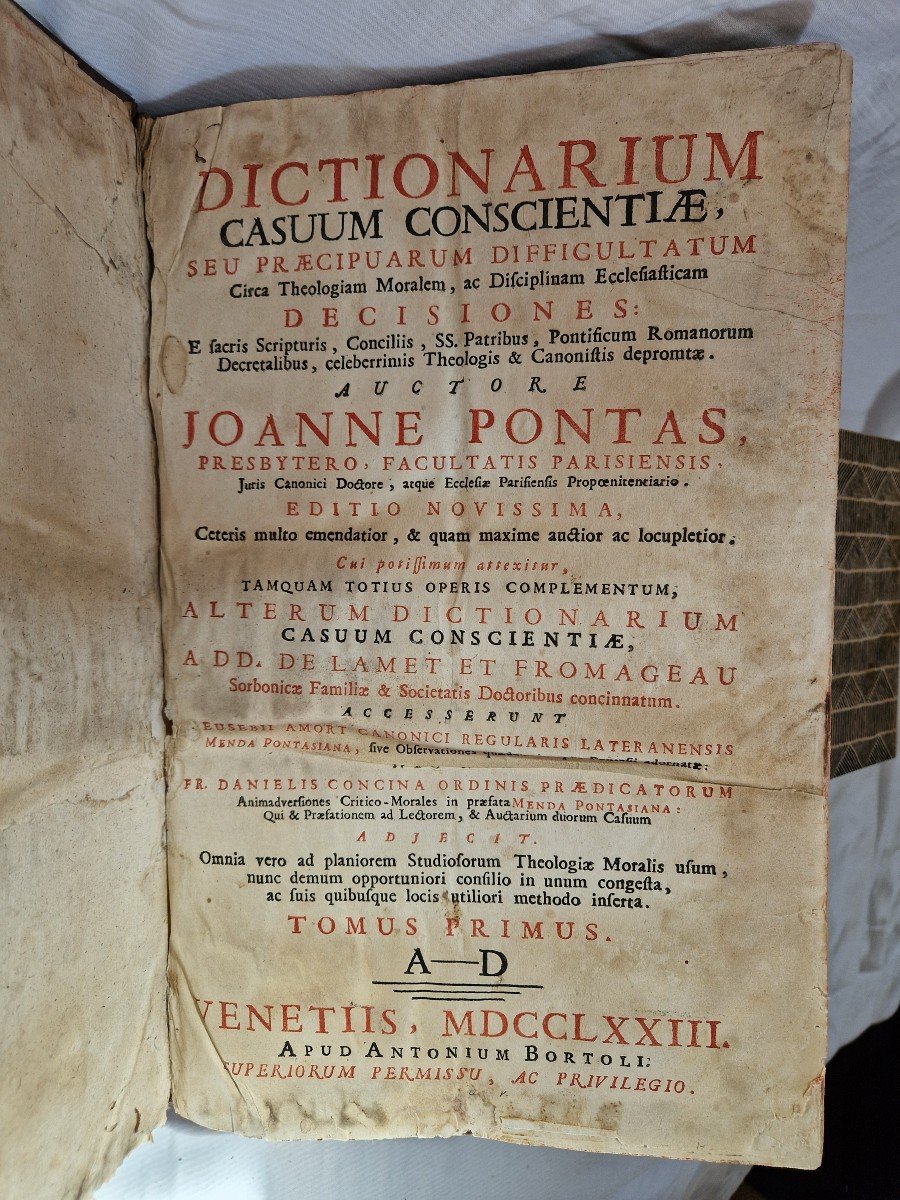 DICTIONARIUM
CASUUM CONSCIENTIÆ,
SEU PRÆCIPUARUM DIFFICULTATUM
Circa Theologiam Moralem, ac Diſciplinam Eccleſiaſticam
DECISIONES:
E ſacris Scripturis, Conciliis, SS. Patribus, Pontificum Romanorum
Decretalibus, celeberrimis Theologis & Canoniſtis depromtæ.
AUCTORE
JOANNE PONTAS,
PRESBYTERO, FACULTATIS PARISIENSIS,
Juris Canonici Doctore, atque Eccleſiæ Pariſienſis Propœnitentiario.
EDITIO NOVISSIMA,
Ceteris multo emendatior, & quam maxime auctior ac locupletior.
Cui potiſſimum attexitur,
TAMQUAM TOTIUS OPERIS COMPLEMENTUM,
ALTERUM DICTIONARIUM
CASUUM CONSCIENTIÆ,
A DD. DE LAMET ET FROMAGEAU
Sorbonicæ Familiæ & Societatis Doctoribus concinnatum.
ACCESSERUNT
EUSEBII AMORT CANONICI REGULARIS LATERANENSIS
MENDA PONTASIANA, ſive Obſervationes
FR. DANIELIS CONCINA ORDINIS PRÆDICATORUM
Animadverſiones Critico-Morales in præfata MENDA PONTASIANA:
Qui & Præfationem ad Lectorem, & Auctarium duorum Caſuum
ADJECIT.
Omnia vero ad planiorem Studioſorum Theologiæ Moralis uſum,
nunc demum opportuniori conſilio in unum congeſta,
ac ſuis quibuſque locis utiliori methodo inſerta.
TOMUS PRIMUS.
A—D
VENETIIS, MDCCLXXIII.
APUD ANTONIUM BORTOLI:
SUPERIORUM PERMISSU, AC PRIVILEGIO.